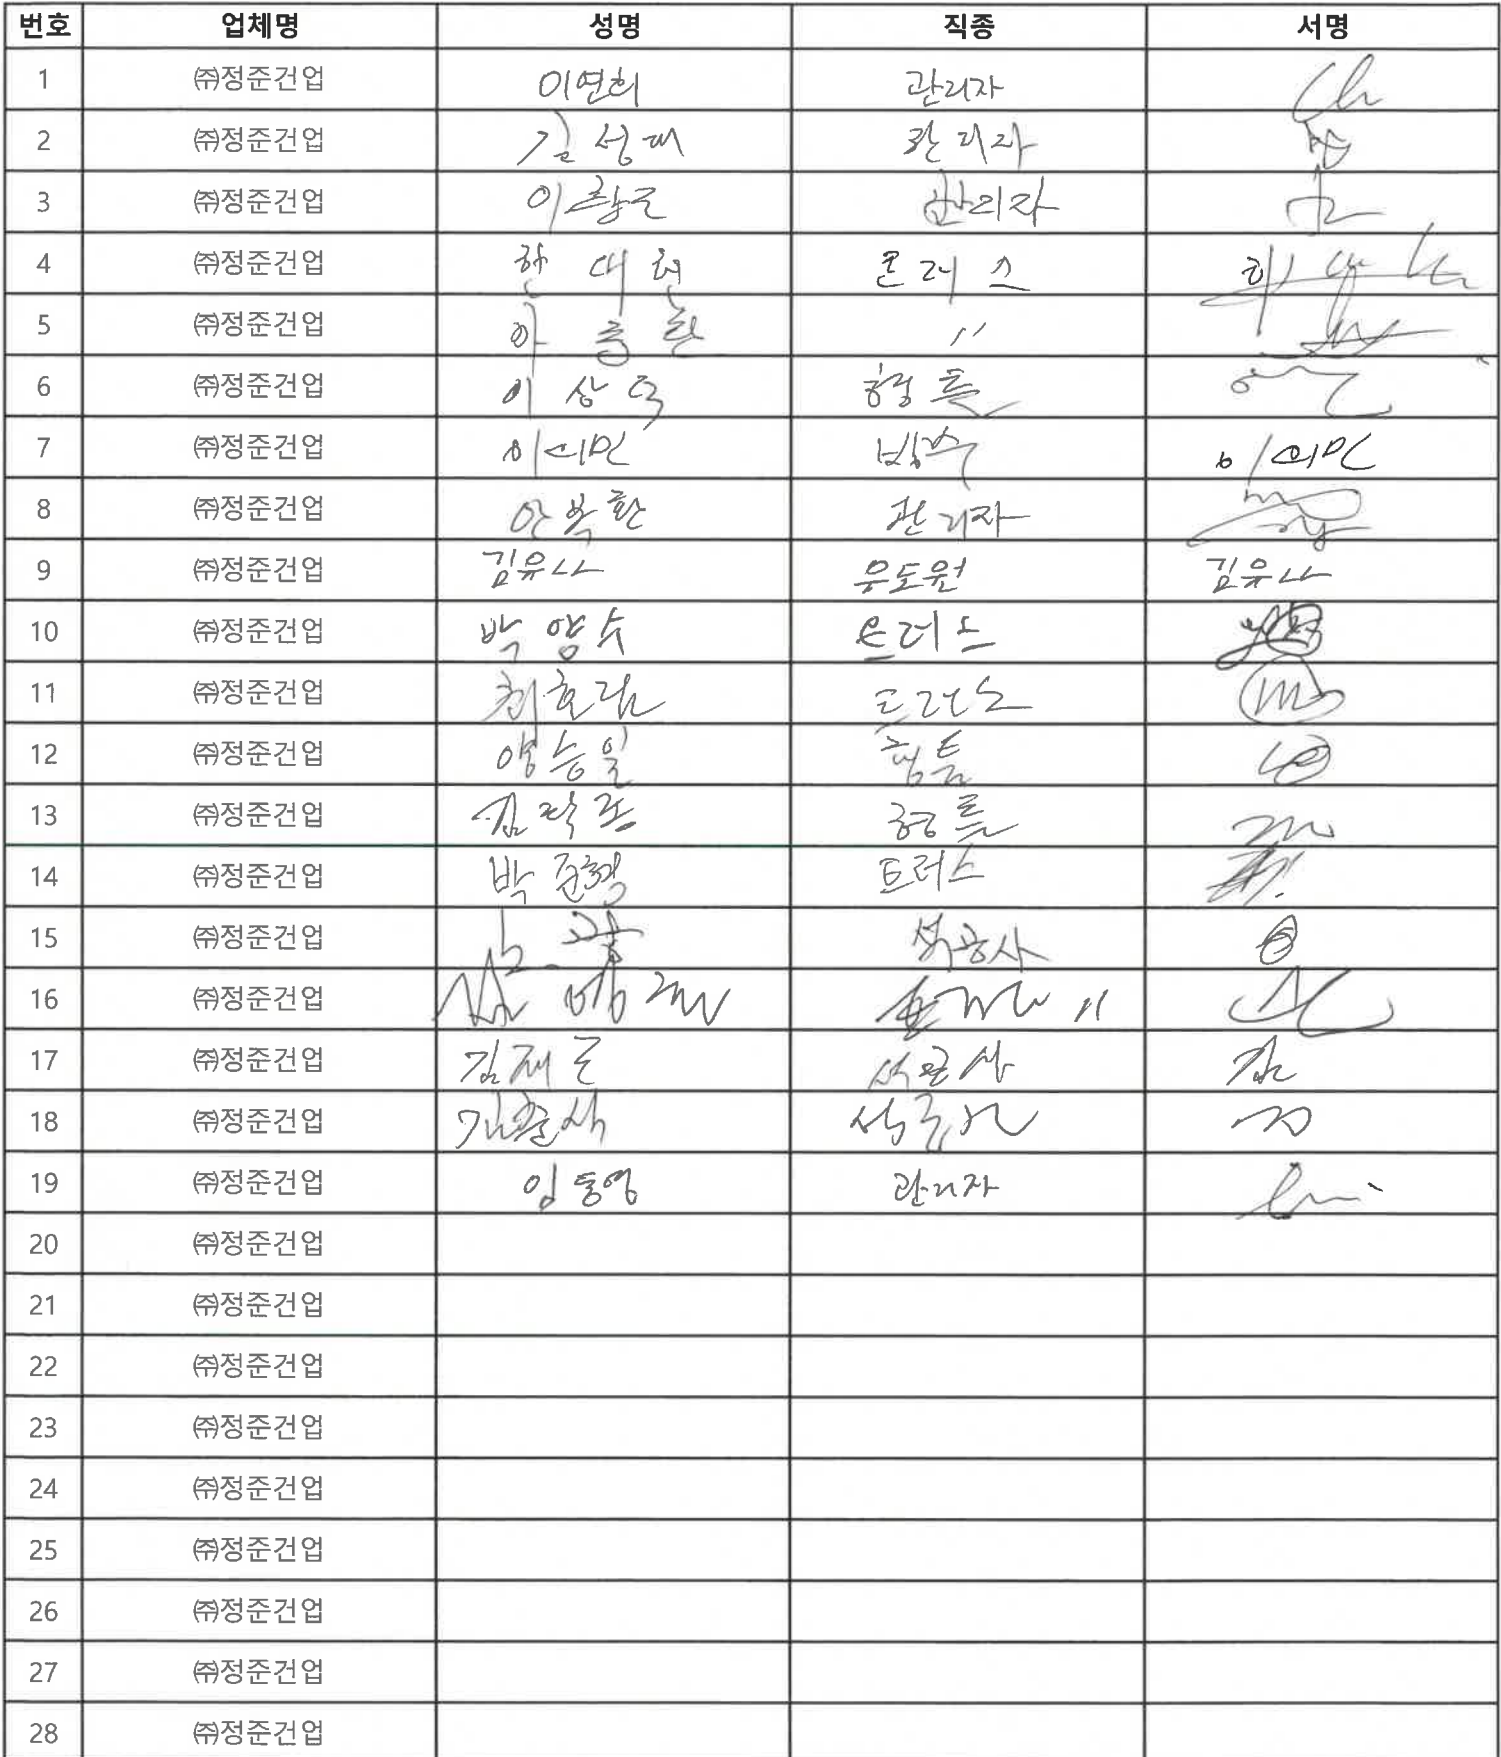 번호 업체명 성명 직종 서명
1 ㈜정준건업 이연희 관리자
2 ㈜정준건업 김성대 관리자
3 ㈜정준건업 이창근 관리자
4 ㈜정준건업 한대현
5 ㈜정준건업 〃
6 ㈜정준건업 이상덕 형틀
7 ㈜정준건업 이의민 방수 이의민
8 ㈜정준건업 안복환 관리자
9 ㈜정준건업 김유나 유도원 김유나
10 ㈜정준건업 박양수 트러스
11 ㈜정준건업 최호림 트러스
12 ㈜정준건업 양승일 형틀
13 ㈜정준건업 형틀
14 ㈜정준건업 박준형 트러스
15 ㈜정준건업 석공사
16 ㈜정준건업 〃
17 ㈜정준건업 김재근 석공사 김
18 ㈜정준건업 김춘식
19 ㈜정준건업 임동영 관리자
20 ㈜정준건업
21 ㈜정준건업
22 ㈜정준건업
23 ㈜정준건업
24 ㈜정준건업
25 ㈜정준건업
26 ㈜정준건업
27 ㈜정준건업
28 ㈜정준건업